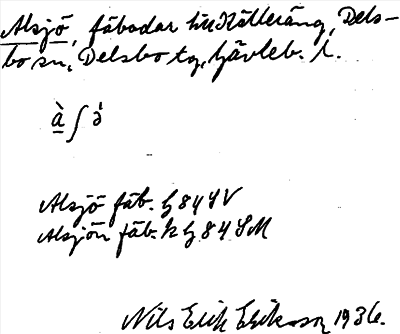 Alsjö, fäbodar till Källeräng, Dels-
bo sn, Delsbo tg, Gävleb. l.
à̲ ʃ ə̀
Alsjö fäb. G 84 4 V
Alsjön fäb. k G 84 SM
Nils Erik Eriksson 1936.